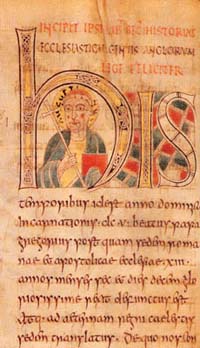 INCIPIT IPSIUS LIB HISTORIAE
ECCLESIASTICAE GENTIS ANGLORUM
LEGE FELICITER
hIS
temporibus id est anno domini
incarnationis. dc. v beatus papa
gregorius post quam sedem roma
nae et apostolicae ecclesiae xiii.
annos menses sex et dies decem glo
riosissime rexit defunctus est
atq. ad aeternam regni caelestis
sedem translatus. De quo nos con